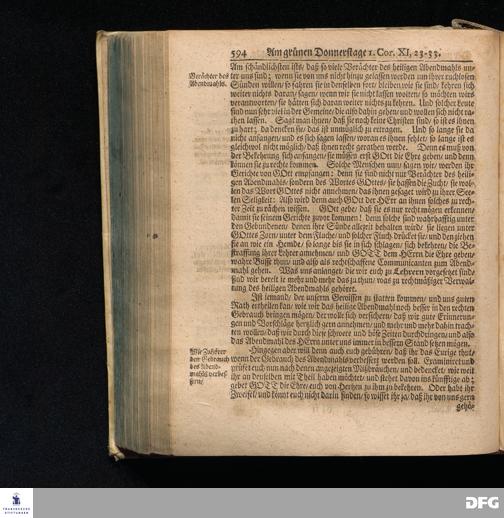 594 Am grünen Donnerstage 1. Cor. XI, 23-33.
Am schändlichsten ists/ daß so viele Verächter des heiligen Abendmahls un-
Verächter des
Abendmahls.
ter uns sind; wenn sie von uns nicht hinzu gelassen werden um ihrer ruchlosen
Sünden willen/ so fahren sie in denselben fort/ bleiben wie sie sind/ kehren sich
weiter nichts daran/ sagen/ wenn wir sie nicht lassen wolten/ so möchten wirs
verantworten/ sie hätten sich daran weiter nichts zu kehren. Und solcher Leute
sind nun sehr viel in der Gemeine/ die also dahin gehen/ und wollen sich nicht ra-
then lassen. Sagt man ihnen/ daß sie noch keine Christen sind/ so ist es ihnen
zu hart; da dencken sie/ das ist unmöglich zu ertragen. Und so lange sie da
nicht anfangen/ und es sich sagen lassen/ woran es ihnen fehle/ so lange ist es
gleichwol nicht möglich/ daß ihnen recht gerathen werde. Denn es muß von
der Bekehrung sich anfangen/ sie müssen erst GOtt die Ehre geben/ und denn
können sie zu rechte kommen. Solche Menschen nun/ sagen wir/ werden ihr
Gerichte von GOtt empfangen: denn sie sind nicht nur Verächter des heili-
gen Abendmahls/ sondern des Wortes GOttes/ sie hassen die Zucht/ sie wol-
len das Wort GOttes nicht annehmen/ das ihnen gesaget wird zu ihrer See-
len Seligkeit: Also wird denn auch GOtt der HErr an ihnen solches zu rech-
ter Zeit zu rächen wissen. GOtt gebe/ daß sie es nur recht mögen erkennen/
damit sie seinem Gerichte zuvor kommen! denn solche sind wahrhafftig unter
den Gebundenen/ denen ihre Sünde allezeit behalten würde/ sie liegen unter
GOttes Zorn/ unter dem Fluche/ und solcher Fluch drücket sie/ und den ziehen
sie an wie ein Hemde/ so lange bis sie in sich schlagen/ sich bekehren/ die Be-
straffung ihrer Lehrer annehmen/ und GOTT dem HErrn die Ehre geben/
wahre Busse thun/ und also als rechtschaffene Communicanten zum Abend-
mahl gehen. Was uns anlanget/ die wir euch zu Lehrern vorgesetzet sind/
so sind wir bereit ie mehr und mehr das zu thun/ was zu rechtmäßiger Verwal-
tung des heiligen Abendmahls gehöret.
Ist iemand/ der unserm Gewissen zu statten kommen/ und uns guten
Rath ertheilen kan/ wie wir das heilige Abendmahl noch besser in den rechten
Gebrauch bringen mögen/ der wolle sich versichern/ daß wir gute Erinnerun-
gen und Vorschläge hertzlich gern annehmen/ und mehr und mehr dahin trach-
ten wollen/ daß wir durch diese schwere und böse Zeiten durchdringen/ und also
das Abendmahl des HErrn unter uns immer in bessern Stand setzen mögen.
Wie Zuhörer
den Gebrauch
des Abend-
mahls verbes-
sern/
Hingegen aber will denn auch euch gebühren/ daß ihr das Eurige thut/
wenn der Gebrauch des Abendmahls verbessert werden soll. Examiniret und
prüfet euch nun nach denen angezeigten Mißbräuchen/ und bedencket/ wie weit
ihr an denselben mit Theil haben möchtet/ und stehet davon ins künfftige ab;
gebet GOTT die Ehre/ euch von Hertzen zu ihm zu bekehren. Oder habt ihr
Zweifel/ und könnt euch nicht darin finden/ so wisset ihr ja/ daß ihr von uns gern
gehö-
FRANCKESCHE
STIFTUNGEN
DFG